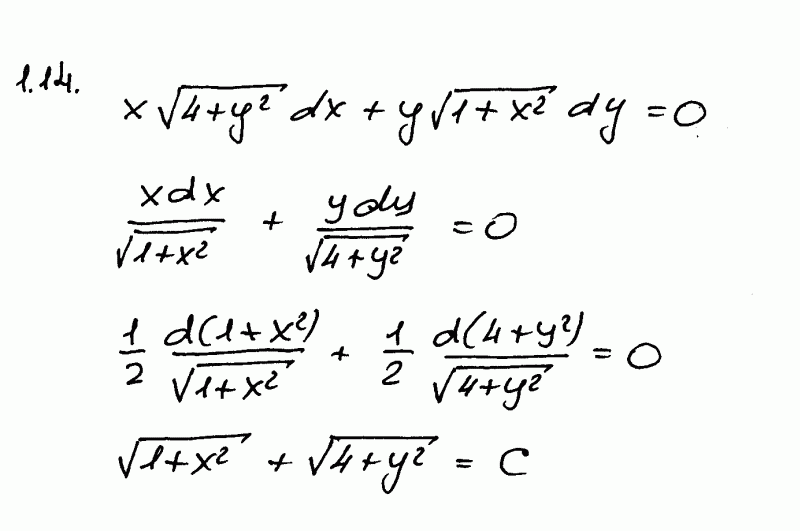 1.14.
x√(4+y²) dx + y√(1+x²) dy = 0
xdx/√(1+x²) + ydy/√(4+y²) = 0
1/2 d(1+x²)/√(1+x²) + 1/2 d(4+y²)/√(4+y²) = 0
√(1+x²) + √(4+y²) = C